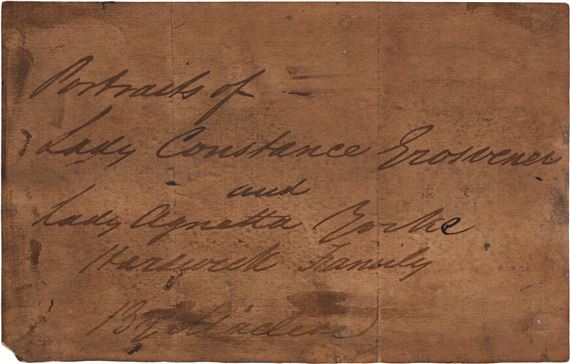 Portraits of
Lady Constance Grosvener
and
Lady Agnetta Yorke
Hardwick Family
By